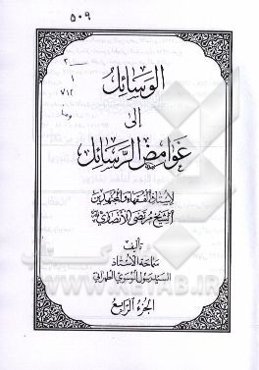 ٥٠٩
٢
١
٧١٢
الوسائل
إلى
غوامض الرسائل
لأستاذ الفقهاء والمجتهدين
الشيخ مرتضى الأنصاري
تأليف
سماحة الأستاذ
السيد رسول الموسوي الطهراني
الجزء الرابع